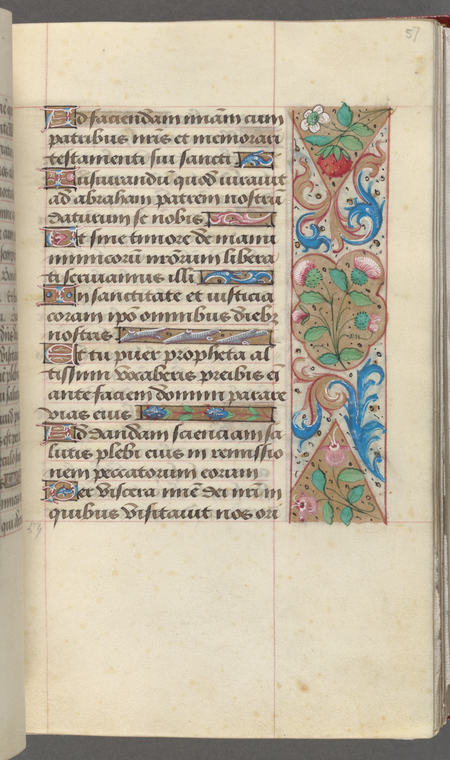 57
Ad faciendam miam cum
patribus nris et memorari
testamenti sui sancti
Iusiurandu quod iurauit
ad abraham patrem nostru
daturum se nobis
Ut sine timore de manu
inimicoru nrorum libera
ti seruiamus illi
In sanctitate et iusticia
coram ipo omnibus dieb
nostris
Et tu puer propheta al
tissimi vocaberis preibis ei
ante faciem domini parare
vias eius
Ad dandam scienciam sa
lutis plebi eius in remissio
nem peccatorum eorum
Per viscera mie dei nrim
quibus visitauit nos ori